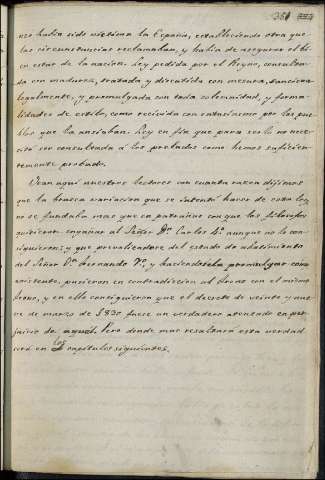 351
nes habia sido victima la España, estableciendo otra que
las circunstancias reclamaban, y habia de asegurar el bi-
en estar de la nacion. Ley pedida por el Reyno, consulta-
da con madurez, tratada y discutida con mesura, sanciona
legalmente, y promulgada con toda solemnidad, y forma-
lidades de estilo, como recivida con entusiasmo por los pue-
blos que la ansiaban. Ley en fin que para serlo no nece-
sitó ser consultada á los prelados como hemos suficien-
temente probado.
Vean aqui nuestros lectores con cuanta razon digimos
que la brusca variacion que se intentó hacer de esta ley,
no se fundaba mas que en patrañas con que los filosofos
quisieron engañar al Señor Dn Carlos 4º aunque no lo con-
siguieron; y que prevaliendose del estado de abatimiento
del Señor Dn Fernando 7º, y haciendosela promulgar como
existente, pusieron en contradiccion al trono con el mismo
trono, y en ello consiguieron que el decreto de veinte y nue-
ve de marzo de 1830 fuese un verdadero atentado en per-
juicio de aquel. Pero donde mas resaltará esta verdad
será en los capitulos siguientes.